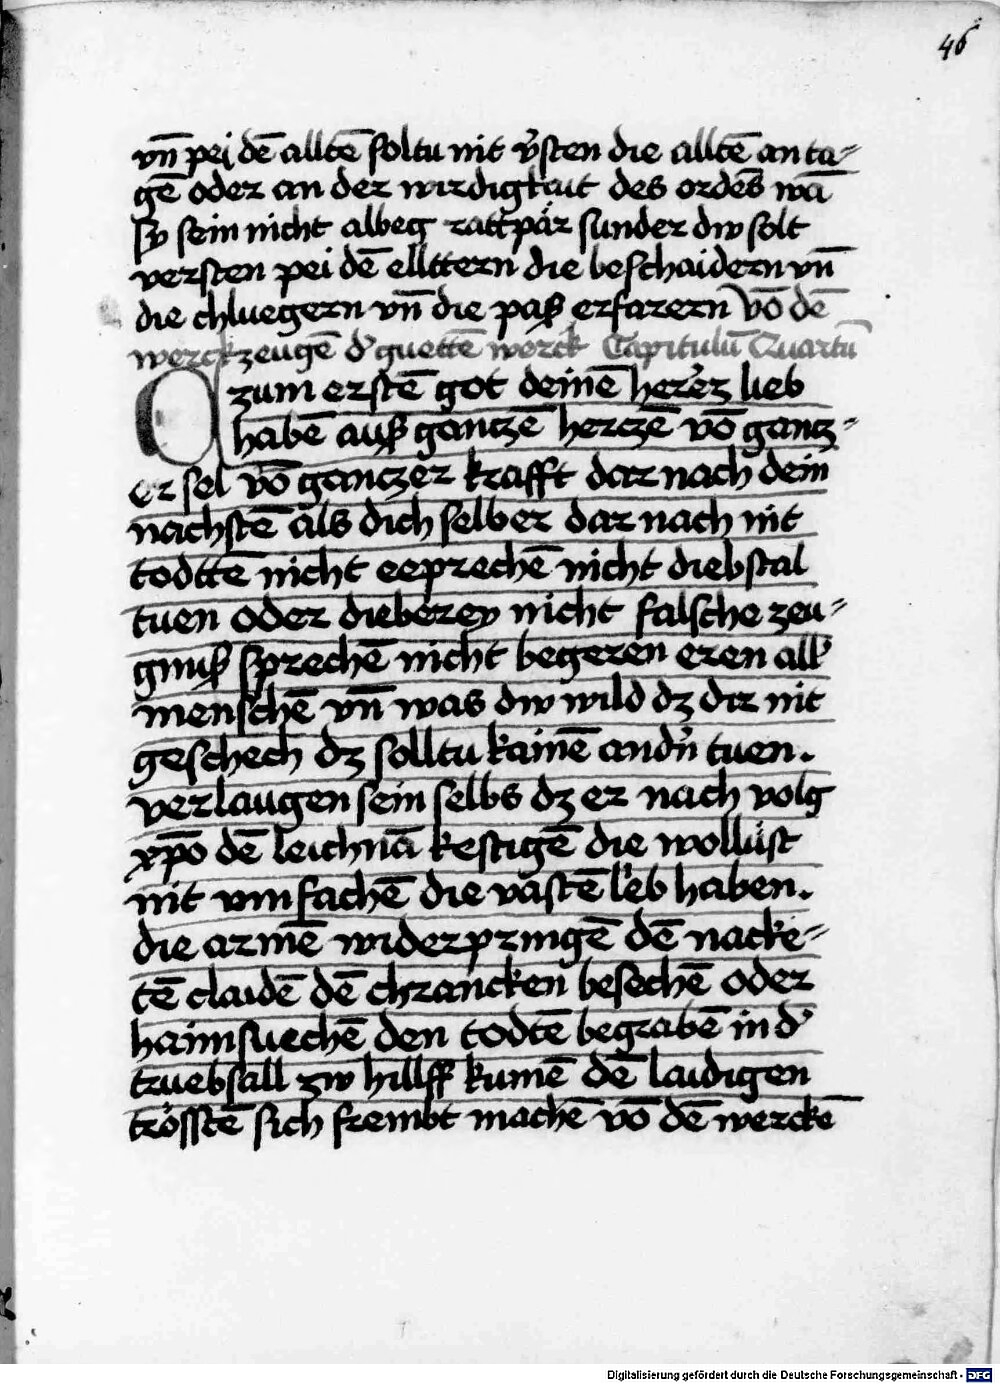 46
vn̄ pej dē alltē soltu nit v̾sten die alltē an ta-
gē oder an der wirdigkait des ordēs wā
sy sein nicht albeg rattpär sunder dw solt
versten pei dē ellttern die beschaidern vn̄
die chluegern vn̄ die paß erfarern Vō dē
werckzeugē d̾ guettē werck Capitulū Quartū
O zum erstē got deinē herr̄ez lieb
habē auß gantzē hertzē vō gantz-
er sel vō gantzer krafft dar nach dein̄
nachstē als dich selber dar nach nit
todttē nicht eeprechē nicht diebstal
tuen oder dieberey nicht falsche zeu-
gnuß sprechē nicht begeren eren all̾
menschē vn̄ was dw wild dz dir nit
geschech dz solltu kainē andn̾ tuen.
verlaugen sein selbs dz er nach volg
xp̄o dē leichnā kestigē die wollüst
nit vmfachē die vastē lieb haben.
die armē widerpringē dē nacke-
tē claidē dē chrancken besechē oder
haimsuechē den todtē begrabē in d̾
truebsall zw hillff kumē dē laidigen
trösstē sich frembt machē vō dē werckē
Digitalisierung gefördert durch die Deutsche Forschungsgemeinschaft - DFG